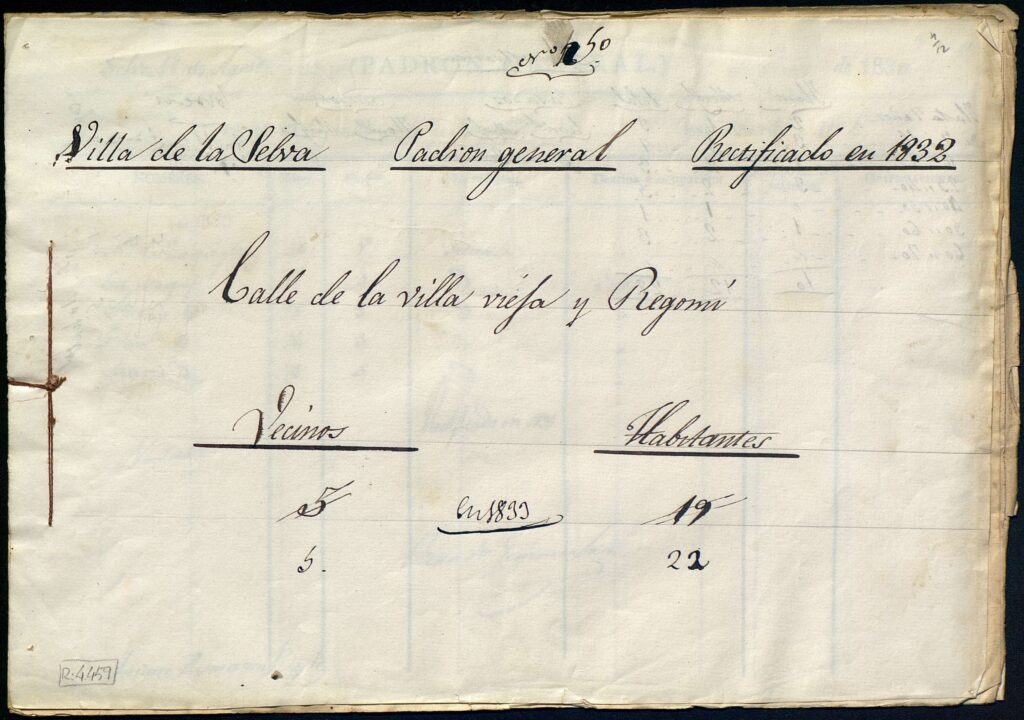 Nro 50
4/12
Villa de la Selva Padron general Rectificado en 1832
Calle de la villa viesa y Regomi
Vecinos Habitantes
5 en 1833 19
5. 22
R. 4459